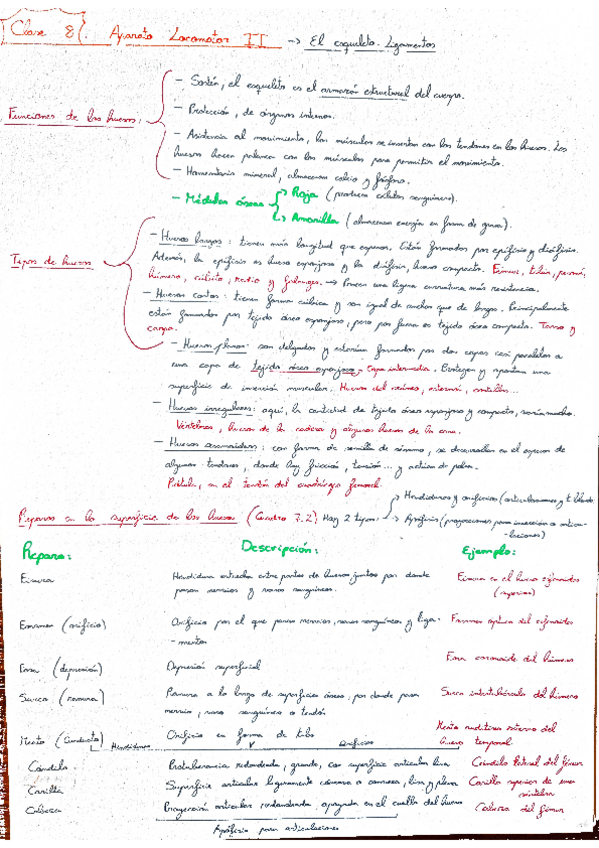 Clase 8. Aparato Locomotor II → El esqueleto. Ligamentos
Funciones de los huesos:
- Sostén, el esqueleto es el armazón estructural del cuerpo.
- Protección, de órganos internos.
- Asistencia al movimiento, los músculos se insertan con los tendones en los huesos. Los
huesos hacen palanca con los músculos para permitir el movimiento.
- Homeostasis mineral, almacenan calcio y fósforo.
- Médula ósea → Roja (produce células sanguíneas).
→ Amarilla (almacenan energía en forma de grasa).
Tipos de huesos
- Huesos largos: tienen más longitud que espesor. Están formados por epífisis y diáfisis.
Además, la epífisis es hueso esponjoso y la diáfisis, hueso compacto. Fémur, tibia, peroné,
húmero, cúbito, radio y falanges. → Poseen una ligera curvatura más resistencia.
- Huesos cortos: tienen forma cúbica y son igual de anchos que de largos. Principalmente
están formados por tejido óseo esponjoso, pero por fuera es tejido óseo compacto. Tarso y
carpo.
- Huesos planos: son delgados y estarían formados por dos capas casi paralelas a
una capa de tejido óseo esponjoso → Capa intermedia. Protegen y aportan una
superficie de inserción muscular. Huesos del cráneo, esternón, costillas...
- Huesos irregulares: aquí, la cantidad de tejido óseo esponjoso y compacto, varía mucho.
Vértebras, huesos de la cadera y algunos huesos de la cara.
- Huesos sesamoideos: con forma de semilla de sésamo, se desarrollan en el espesor de
algunos tendones, donde hay fricción, tensión... y actúan de polea.
Rótula, en el tendón del cuádriceps femoral
Reparos en la superficie de los huesos (Cuadro 7.2) Hay 2 tipos:
→ Hendiduras y orificios (articulaciones y t. blando
→ Apófisis (proyecciones para inserción o articu-
laciones)
Reparo: Descripción: Ejemplo:
Fisura Hendidura estrecha entre partes de huesos juntos por donde Fisura en el hueso esfenoides
pasan nervios y vasos sanguíneos. (superior)
Foramen (orificio) Orificio por el que pasan nervios, vasos sanguíneos y liga- Foramen óptico del esfenoides
- mentos
Fosa (depresión) Depresión superficial Fosa coronoide del húmero
Surco (ranura) Ranura a lo largo de superficie ósea, por donde pasa Surco intertubercular del húmero
nervio, vaso sanguíneo o tendón
Meato (Conducto) Orificio en forma de tubo Meato auditivo externo del
hueso temporal
Hendiduras orificios
Cóndilo Protuberancia redondeada, grande, con superficie articular lisa Cóndilo lateral del fémur
Carilla Superficie articular ligeramente cóncava o convexa, lisa y plana Carilla superior de una
vértebra
Cabeza Proyección articular redondeada, apoyada en el cuello del hueso Cabeza del fémur
Apófisis para articulaciones